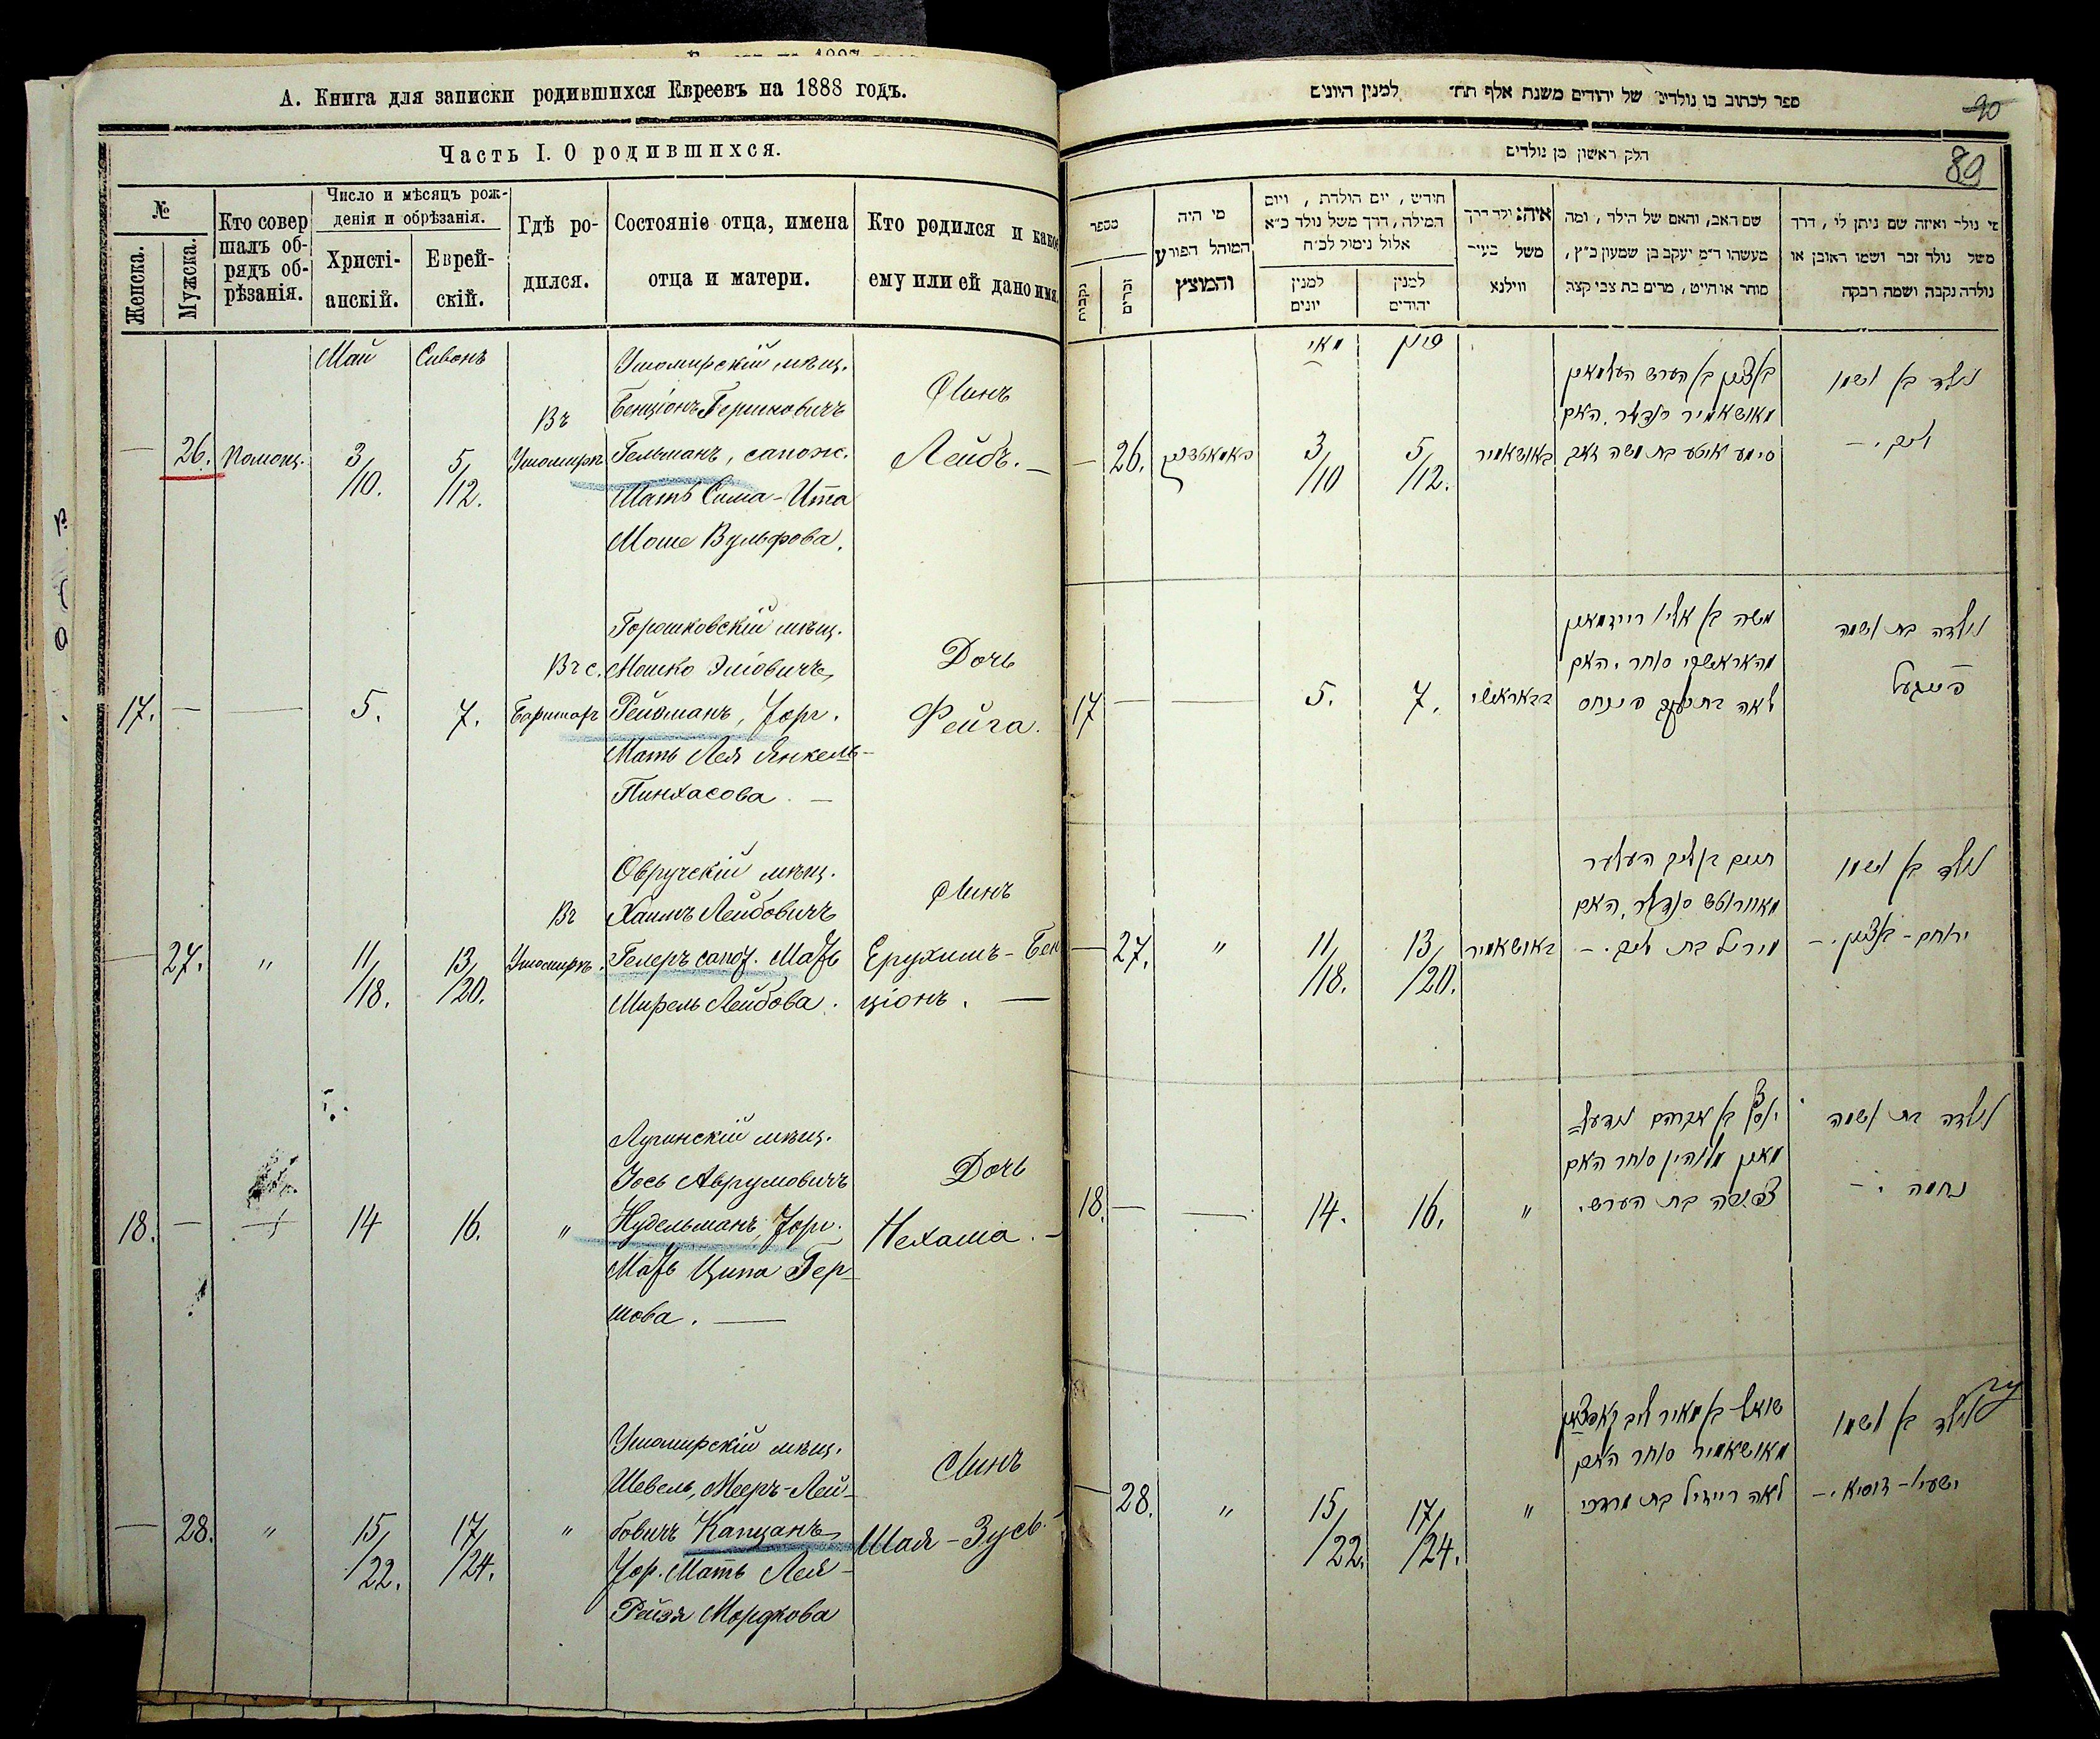 А. Книга для записки родившихся Евреевъ на 1888 годъ.
Часть I. О родившихся.
№
Женска.
Мужска.
Кто совер
шалъ об-
рядъ об-
рѣзанія.
Число и мѣсяцъ рож-
денія и обрѣзанія.
Христі-
анскій.
Еврей-
скій.
Гдѣ ро-
дился.
Состояніе отца, имена
отца и матери.
Кто родился и какое
ему или ей дано имя.
Май
Сивонъ
—
26.
3/10.
5/12.
Въ
Ушомирѣ
Ушомирскій мѣщ.
Бенціонъ Гершковичъ
Гельманъ, сапож.
Мать Сима-Ита
Моше Вульфова.
Сынъ
Лейбъ. —
17.
—
—
5.
7.
Въ с.
Горошковскій мѣщ.
Мошко Эліовичъ
Рейдманъ, Торг.
Мать Лея Янкель-
Пинхасова. —
Дочь
Фейга.
—
27.
"
11/18.
13/20.
Въ
Ушомирѣ.
Овручскій мѣщ.
Хаимъ Лейбовичъ
Гелеръ сапож. Мать
Мирель Лейбова.
Сынъ
Ерухимъ-Бен
ціонъ. —
18.
—
14
16.
"
Лугинскій мѣщ.
Іось Аврумовичъ
Нудельманъ, Торг.
Мать Ципа Гер-
шова. —
Дочь
Нехама. -
—
28.
"
15/22.
17/24.
"
Ушомирскій мѣщ.
Шевель, Мееръ-Лей-
бовичъ Капцанъ
Тор. Мать Лея-
Рейзя Мордкова
Сынъ
Шая-Зусь.
ספר לכתוב בו נולדים של יהודים משנת אלף תת״ למנין היונים
90
89
חלק ראשון מן נולדים
מספר
נקבות
זכרים
מי היה
המוהל הפורע
והמוצץ
חודש, יום הולדת, ויום
המילה, דרך משל נולד כ״א
אלול נימול לכ״ח
למנין
יונים
למנין
יהודים
איה ילד דרך
משל בעיר
ווילנא
שם האב, והאם של הילד, ומה
מעשהו ד״מ יעקב בן שמעון כ״ץ,
סוחר או חייט, מרים בת צבי קצב
מי נולד ואיזה שם ניתן לו, דרך
משל נולד זכר ושמו ראובן או
נולדה נקבה ושמה רבקה
מאי
סיון
—
26.
3/10
5/12.
באושאמיר
בן ציון בן הערש העלמאן
מאושאמיר סנדלר. האם
סימע איטע בת משה וואלף
נולד בן ושמו
ליב. —
17
—
—
5.
7.
משה בן אליו ריידמאן
סוחר. האם
לאה בת יענקל פינחס
נולדה בת ושמה
פייגעל
—
27.
"
11/18.
13/20.
באושאמיר
חיים בן ליב העלער
מאוורוטש סנדלר, האם
מירל בת ליב. —
נולד בן ושמו
ירוחם - בן ציון. —
18.
—
—
14.
16.
"
יוסף בן אברהם נודעל=
מאן מלוגין סוחר האם
ציפע בת הערש.
נולדה בת ושמה
נחמה. —
—
28.
"
15/22.
17/24.
"
שוואל בן מאיר ליב קאפצאן
מאושאמיר סוחר האם
לאה רייזיל בת מרדכי
נולד בן ושמו
ישעי׳ - זוסיא. —